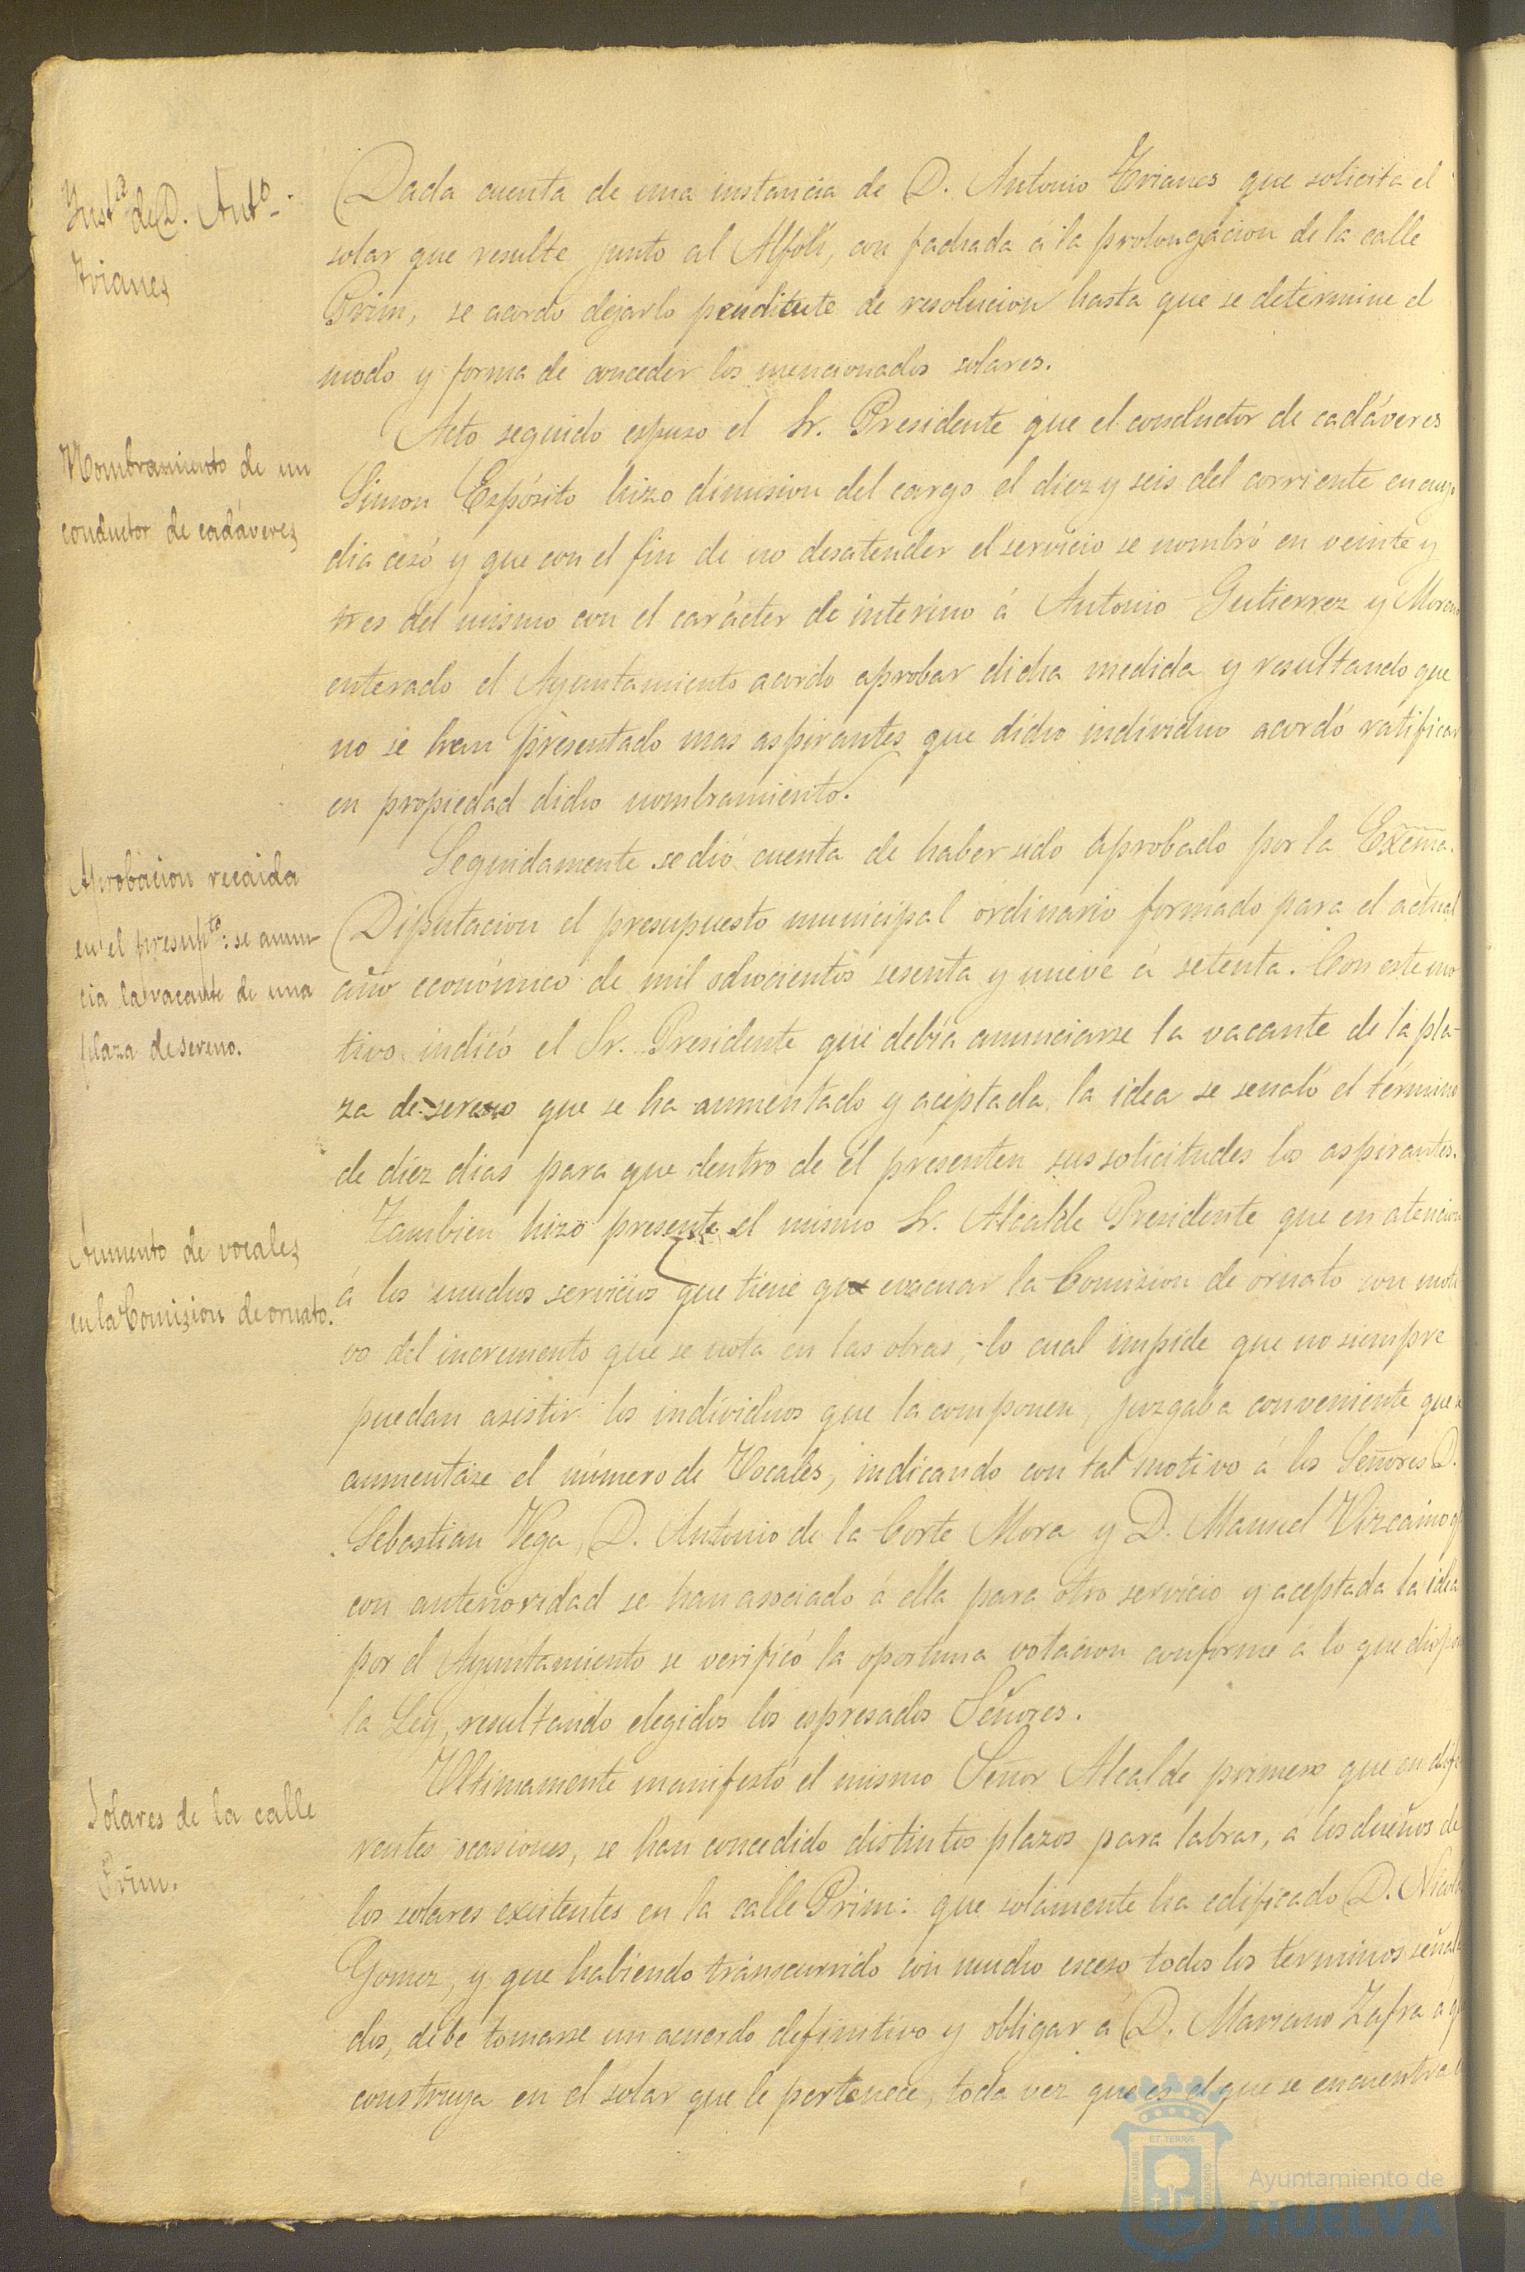 Inst.ª de D. Ant.º
Trianes
Dada cuenta de una instancia de D. Antonio Trianes que solicita el
solar que resulte junto al Alfolí, con fachada á la prolongacion de la calle
Prim, se acordo dejarlo pendiente de resolucion hasta que se determine el
modo y forma de conceder los mencionados solares.
Nombramiento de un
conductor de cadáveres
Acto seguido espuso el Sr. Presidente que el conductor de cadáveres
Simon Expósito hizo dimision del cargo el diez y seis del corriente en cuyo
dia cesó y que con el fin de no desatender el servicio se nombró en veinte y
tres del mismo con el carácter de interino á Antonio Gutierrez y Moreno
enterado el Ayuntamiento acordo aprobar dicha medida y resultando que
no se han presentado mas aspirantes que dicho individuo acordó ratificar
en propiedad dicho nombramiento.
Aprobacion recaida
en el presup.to: se anun-
cia la vacante de una
plaza de sereno.
Seguidamente se dió cuenta de haber sido aprobado por la Excma.
Diputacion el presupuesto municipal ordinario formado para el actual
año económico de mil ochocientos sesenta y nueve á setenta. Con este mo
tivo indicó el Sr. Presidente que debia anunciarse la vacante de la pla-
za de sereno que se ha aumentado y aceptada la idea se señaló el término
de diez dias para que dentro de él presenten sus solicitudes los aspirantes.
Aumento de vocales
en la Comision de ornato.
Tambien hizo presente el mismo Sr. Alcalde Presidente que en atencion
á los muchos servicios que tiene que evacuar la Comision de ornato con moti
vo del incremento que se nota en las obras, lo cual impide que no siempre
puedan asistir los individuos que la componen, juzgaba conveniente que
aumentase el número de Vocales, indicando con tal motivo á los Señores D.
Sebastian Vega, D. Antonio de la Corte Mora y D. Manuel Vizcaino q
con anterioridad se han asociado á ella para otro servicio y aceptada la idea
por el Ayuntamiento se verificó la oportuna votacion conforme á lo que dispo
la Ley, resultando elegidos los espresados Señores.
Solares de la calle
Prim.
Ultimamente manifestó el mismo Señor Alcalde primero que en dife
rentes ocasiones, se han concedido distintos plazos para labrar, á los dueños de
los solares existentes en la calle Prim: que solamente ha edificado D. Nicolas
Gomez, y que habiendo transcurrido con mucho esceso todos los terminos señala
dos, debe tomarse un acuerdo definitivo y obligar á D. Mariano Zafra a q
construya en el solar que le pertenece, toda vez que es el que se encuentra
Ayuntamiento de
HUELVA